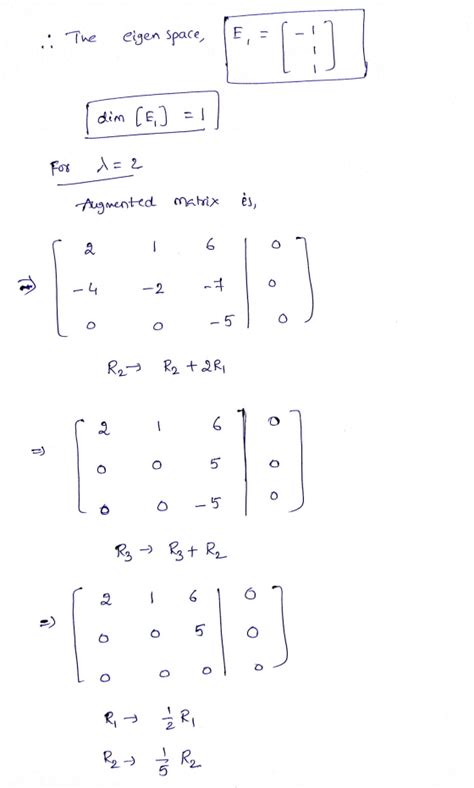 ∴ The eigen space, E₁ = [ -1
1
1 ]
dim [E₁] = 1
For λ = 2
Augmented matrix is,
⇒ [ 2 1 6 | 0
-4 -2 -7 | 0
0 0 -5 | 0 ]
R₂ → R₂ + 2R₁
⇒ [ 2 1 6 | 0
0 0 5 | 0
0 0 -5 | 0 ]
R₃ → R₃ + R₂
⇒ [ 2 1 6 | 0
0 0 5 | 0
0 0 0 | 0 ]
R₁ → 1/2 R₁
R₂ → 1/5 R₂